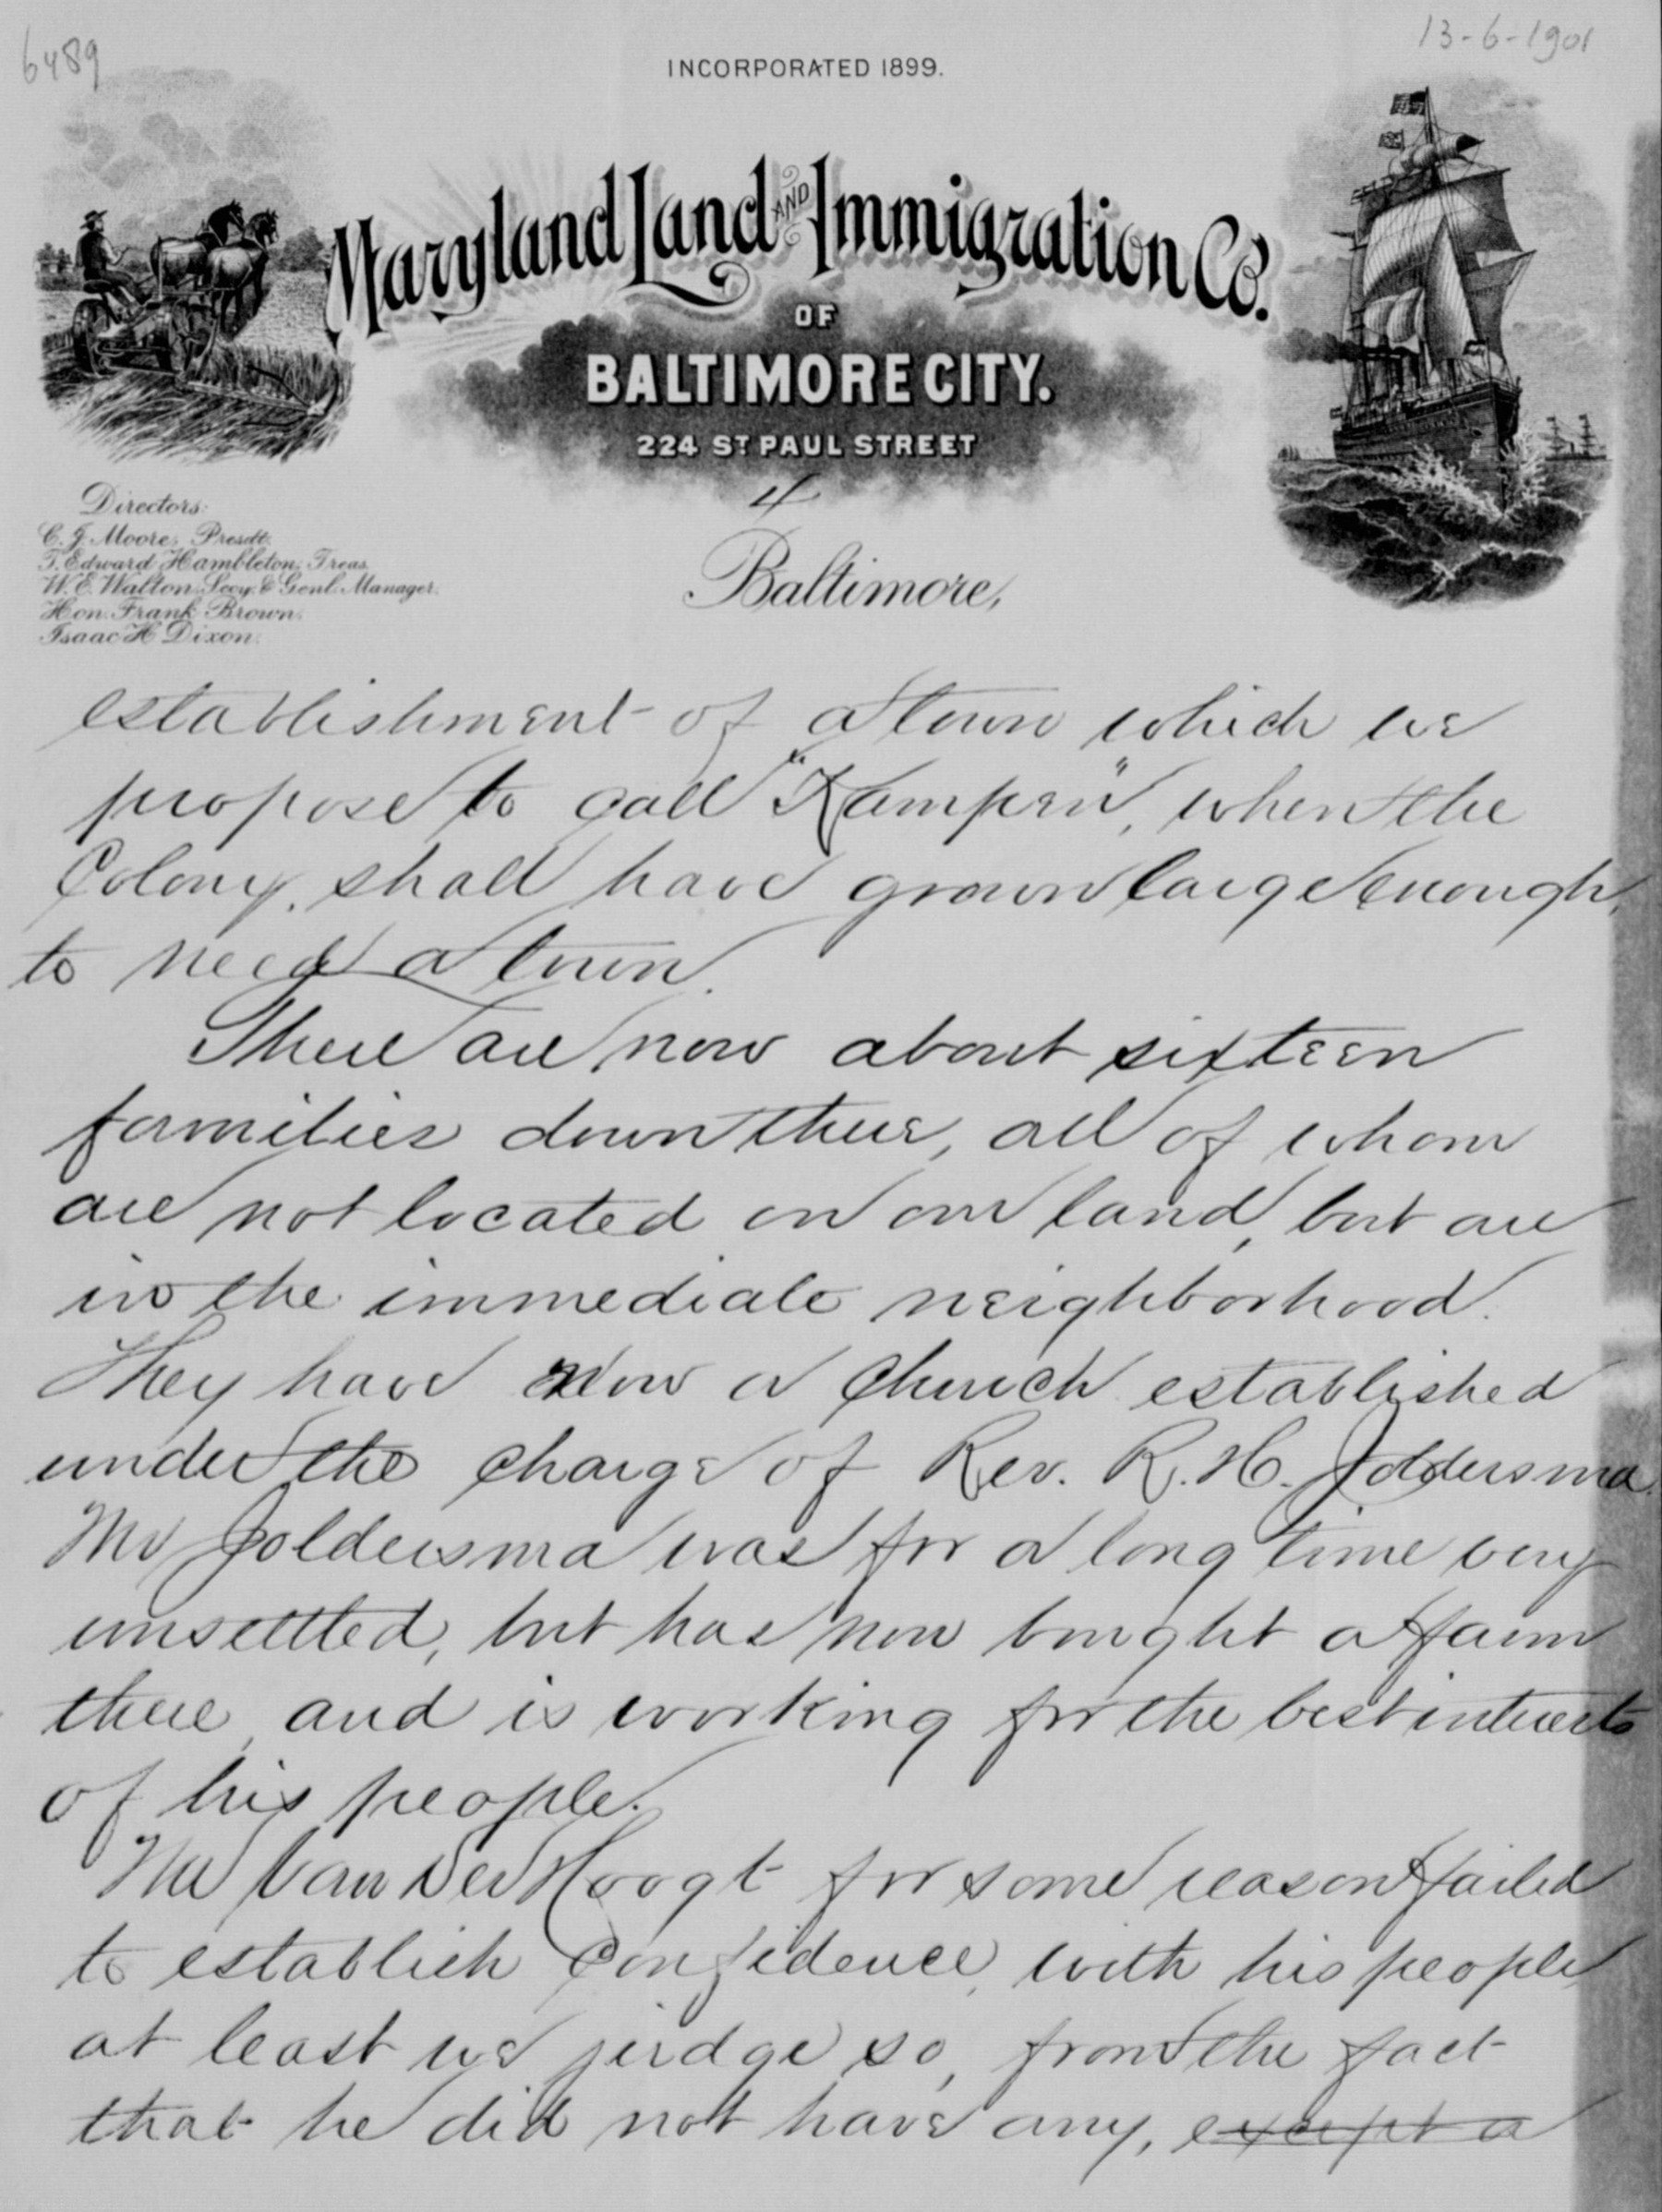 6489
13-6-1901
INCORPORATED 1899.
Maryland Land AND Immigration Co.
OF
BALTIMORE CITY.
224 ST. PAUL STREET
4
Directors:
C. J. Moore, Presdt.
T. Edward Hambleton, Treas.
W. E. Walton, Secy. & Genl. Manager.
Hon. Frank Brown.
Isaac H. Dixon.
Baltimore,
establishment of a town which we
propose to call "Kampen", when the
Colony, shall have grown large enough,
to need a town.
There are now about sixteen
families down there, all of whom
are not located on our land, but are
in the immediate neighborhood.
They have now a church established
under the charge of Rev. R. H. Joldersma.
Mr Joldersma was for a long time very
unsettled, but has now bought a farm
there, and is working for the best interests
of his people.
Mr Van Der Hoogt for some reason failed
to establish confidence, with his people
at least we judge so, from the fact
that he did not have any, except a